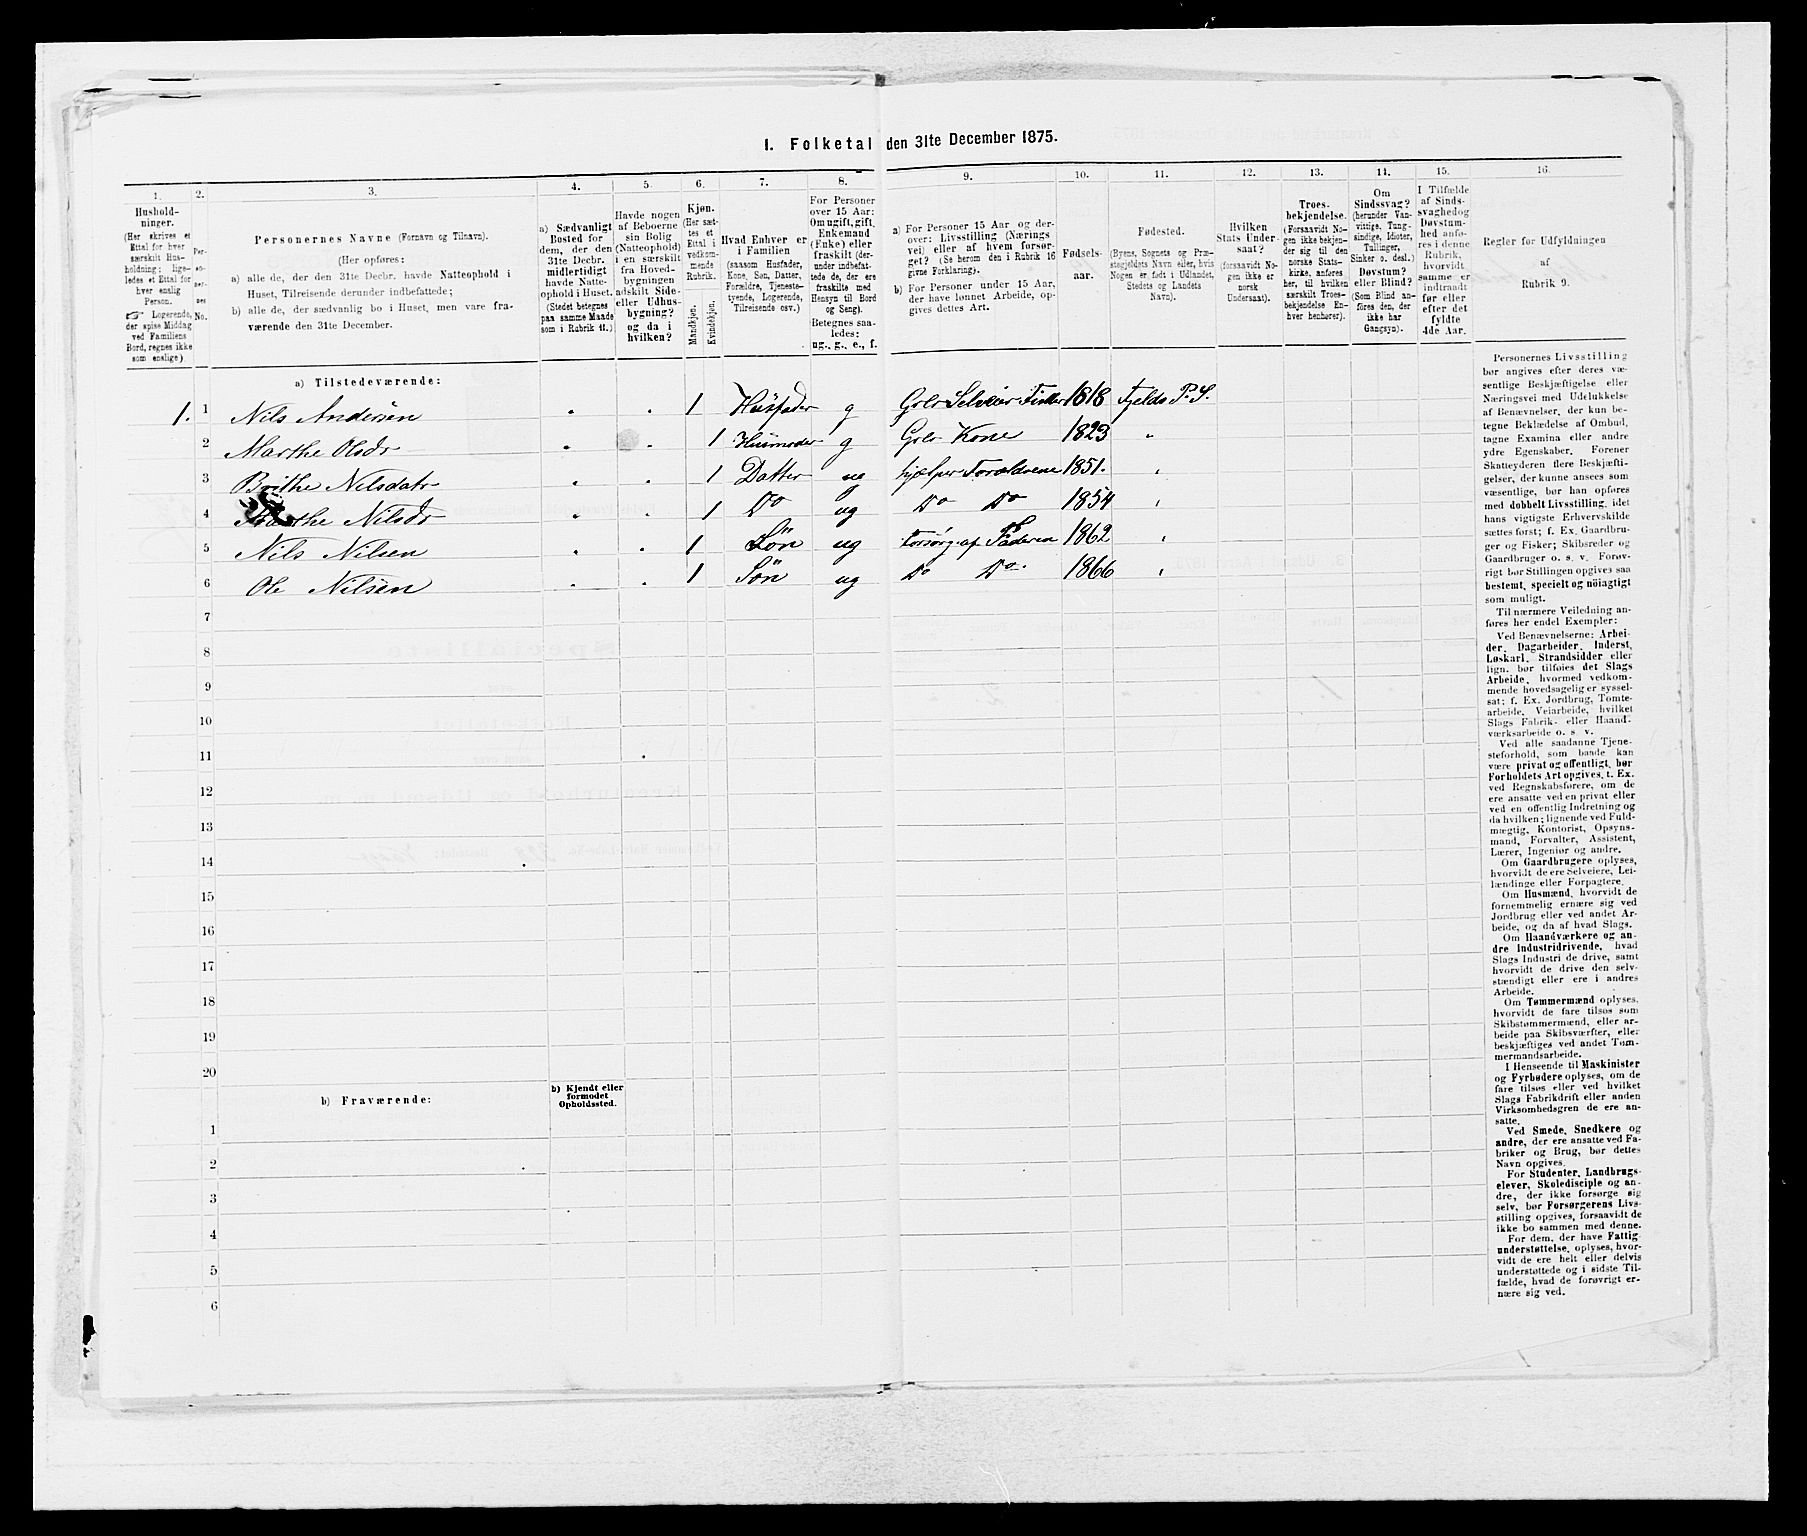 1. Folketal den 31te December 1875.
1. 2. 3. 4. 5. 6. 7. 8. 9. 10. 11. 12. 13. 14. 15. 16.
Hushold-
ninger.
(Her skrives et
Ettal for hver
særskilt Hus-
holdning; lige-
ledes et Ettal for
hver enslig
Person.
☞ Logerende,
der spise Middag
ved Familiens
Bord, regnes ikke
som enslige)
Per-
so-
ner-
nes
No.
Personernes Navne (Fornavn og Tilnavn).
(Her opføres:
a) alle de, der den 31te Decbr. havde Natteophold i
Huset, Tilreisende derunder indbefattede;
b) alle de, der sædvanlig bo i Huset, men vare fra-
værende den 31te December.
a) Sædvanligt
Bosted for
dem, der den
31te Decbr.
midlertidigt
havde Natte-
ophold i Huset.
(Stedet betegnes
paa samme Maade
som i Rubrik 11.)
Havde nogen
af Beboerne
sin Bolig
(Natteophold)
i en særskilt
fra Hoved-
bygningen
adskilt Side-
eller Udhus-
bygning?
og da i
hvilken?
Kjøn.
(Her sæt-
tes et
Ettal i
vedkom-
mende
Rubrik.
Mandkjøn.
Kvindekjøn.
Hvad Enhver er
i Familien
(saasom Husfader,
Kone, Søn, Datter,
Forældre, Tjeneste-
tyende, Logerende,
Tilreisende osv.)
For Personer
over 15 Aar:
Om ugift, gift,
Enkemand
(Enke) eller
fraskilt (der-
under indbefat-
tede de, der ere
fraskilte med
Hensyn til Bord
og Seng).
Betegnes saa-
ledes:
ug., g., e., f.
a) For Personer 15 Aar og der-
over: Livsstilling (Nærings
vei) eller af hvem forsør-
get? (Se herom den i Rubrik 16
givne Forklaring).
b) For Personer under 15 Aar,
der have lønnet Arbeide, op-
gives dettes Art.
Fødsels-
aar.
Fødested.
(Byens, Sognets og Præ-
stegjeldets Navn eller, hvis
Nogen er født i Udlandet,
Stedets og Landets
Navn).
Hvilken
Stats Under-
saat?
(forsaavidt No-
gen ikke er
norsk
Undersaat).
Troes-
bekjendelse.
(Forsaavidt No-
gen ikke bekjen-
der sig til den
norske Stats-
kirke, anføres
her, til hvilken
særskilt Troes-
bekjendelse En-
hver henhører).
Om
Sindssvag?
(herunder Van-
vittige, Tung-
sindige, Idioter,
Tullinger,
Sinker o. desl.)
Døvstum?
eller Blind?
(Som Blind an-
føres den, der
ikke har
Gangsyn).
I Tilfælde
af Sinds-
svaghed og
Døvstum-
hed anfø-
res i denne
Rubrik,
hvorvidt
samme er
indtraadt
før eller
efter det
fyldte
4de Aar.
Regler for Udfyldningen
af
Rubrik 9.
a) Tilstedeværende:
1. 1 Nils Andersen 1 Husfader g Selveier Fisker 1818 Fjelds P.S.
2 Marthe Olsdr 1 Husmoder g Kone 1823 "
3 Brithe Nilsdatr 1 Datter ug hjelper Foreldrene 1851. "
4 Marthe Nilsdr 1 Do ug Do Do 1854 "
5 Nils Nilsen 1 Søn ug Forsørg. af Faderen 1862 "
6 Ole Nilsen 1 Søn ug Do Do 1866 "
7
8
9
10
11
12
13
14
15
16
17
18
19
20
b) Fraværende:
b) Kjendt eller
formodet
Opholdssted.
1
2
3
4
5
6
Personernes Livsstilling
bør angives efter deres væ-
sentlige Beskjæftigelse eller
Næringsvei med Udelukkelse
af Benævnelser, der kun be-
tegne Beklædelse af Ombud,
tagne Examina eller andre
ydre Egenskaber. Forener
Skatteyderen flere Beskjæfti-
gelser, der kunne ansees som
væsentlige, bør han opføres
med dobbelt Livsstilling, idet
hans vigtigste Erhvervskilde
sættes først; f. Ex. Gaardbru-
ger og Fisker; Skibsreder og
Gaardbruger o. s. v. Forøv-
rigt bør Stillingen opgives saa
bestemt, specielt og nöiagtigt
som muligt.
Til nærmere Veiledning an-
føres her endel Exempler:
Ved Benævnelserne: Arbei-
der, Dagarbeider, Inderst,
Løskarl, Strandsidder eller
lign. bør tilføies det Slags
Arbeide, hvormed vedkom-
mende hovedsagelig er syssel-
sat; f. Ex. Jordbrug, Tomte-
arbeide, Veiarbeide, hvilket
Slags Fabrik- eller Haand-
værksarbeide o. s. v.
Ved alle saadanne Tjene-
steforhold, som baade kan
være privat og offentligt, bør
Forholdets Art opgives, t. Ex.
ved Regnskabsførere, om de
ere ansatte ved en privat eller
ved en offentlig Indretning og
da hvilken; lignende ved Fuld-
mægtig, Kontorist, Opsyns-
mand, Forvalter, Assistent,
Lærer, Ingeniør og andre.
Om Gaardbrugere oplyses,
hvorvidt de ere Selveiere, Lei-
lændinge eller Forpagtere.
Om Husmænd, hvorvidt de
fornemmelig ernære sig ved
Jordbrug eller ved andet Ar-
beide, og da af hvad Slags.
Om Haandværkere og an-
dre Industridrivende, hvad
Slags Industri de drive, samt
hvorvidt de drive den selv-
stændigt eller ere i andres
Arbeide.
Om Tømmermænd oplyses,
hvorvidt de fare tilsøs som
Skibstømmermænd, eller ar-
beide paa Skibsværfter, eller
beskjæftiges ved andet Tøm-
mermandsarbeide.
I Henseende til Maskinister
og Fyrbødere oplyses, om de
fare tilsøs eller ved hvilket
Slags Fabrikdrift eller anden
Virksomhedsgren de ere an-
satte.
Ved Smede, Snedkere og
andre, der ere ansatte ved Fa-
briker og Brug, bør dettes
Navn opgives.
For Studenter, Landbrugs-
elever, Skoledisciple og an-
dre, der ikke forsørge sig
selv, bør Forsørgerens Livs-
stilling opgives, forsaavidt de
ikke bo sammen med denne.
For dem, der have Fattig-
understøttelse, oplyses, hvor-
vidt de ere helt eller delvis
understøttede og i sidste Til-
fælde, hvad de forøvrigt er-
nære sig ved.